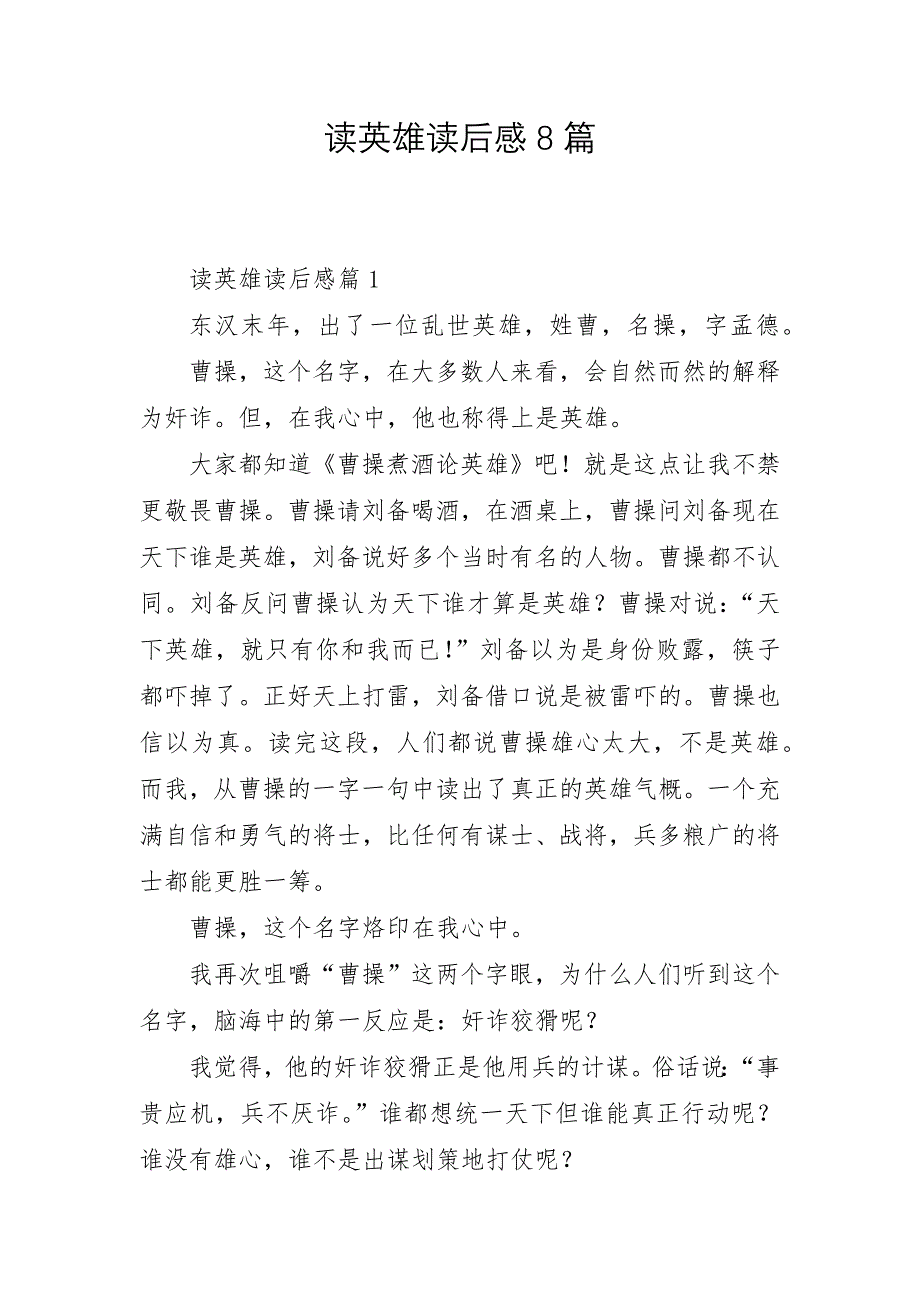 读英雄读后感 8 篇
读英雄读后感篇 1
东汉末年，出了一位乱世英雄，姓曹，名操，字孟德。
曹操，这个名字，在大多数人来看，会自然而然的解释
为奸诈。但，在我心中，他也称得上是英雄。
大家都知道《曹操煮酒论英雄》吧！就是这点让我不禁
更敬畏曹操。曹操请刘备喝酒，在酒桌上，曹操问刘备现在
天下谁是英雄，刘备说好多个当时有名的人物。曹操都不认
同。刘备反问曹操认为天下谁才算是英雄？曹操对说：“天
下英雄，就只有你和我而已！”刘备以为是身份败露，筷子
都吓掉了。正好天上打雷，刘备借口说是被雷吓的。曹操也
信以为真。读完这段，人们都说曹操雄心太大，不是英雄。
而我，从曹操的一字一句中读出了真正的英雄气概。一个充
满自信和勇气的将士，比任何有谋士、战将，兵多粮广的将
士都能更胜一筹。
曹操，这个名字烙印在我心中。
我再次咀嚼“曹操”这两个字眼，为什么人们听到这个
名字，脑海中的第一反应是：奸诈狡猾呢？
我觉得，他的奸诈狡猾正是他用兵的计谋。俗话说：“事
贵应机，兵不厌诈。”谁都想统一天下但谁能真正行动呢？
谁没有雄心，谁不是出谋划策地打仗呢？